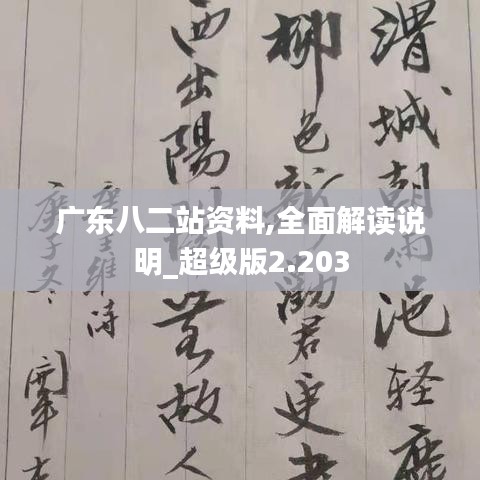 渭城朝雨浥轻
柳色新劝君更
西出陽關無故人
唐王维诗
庚子冬
广东八二站资料,全面解读说
明_超级版2.203